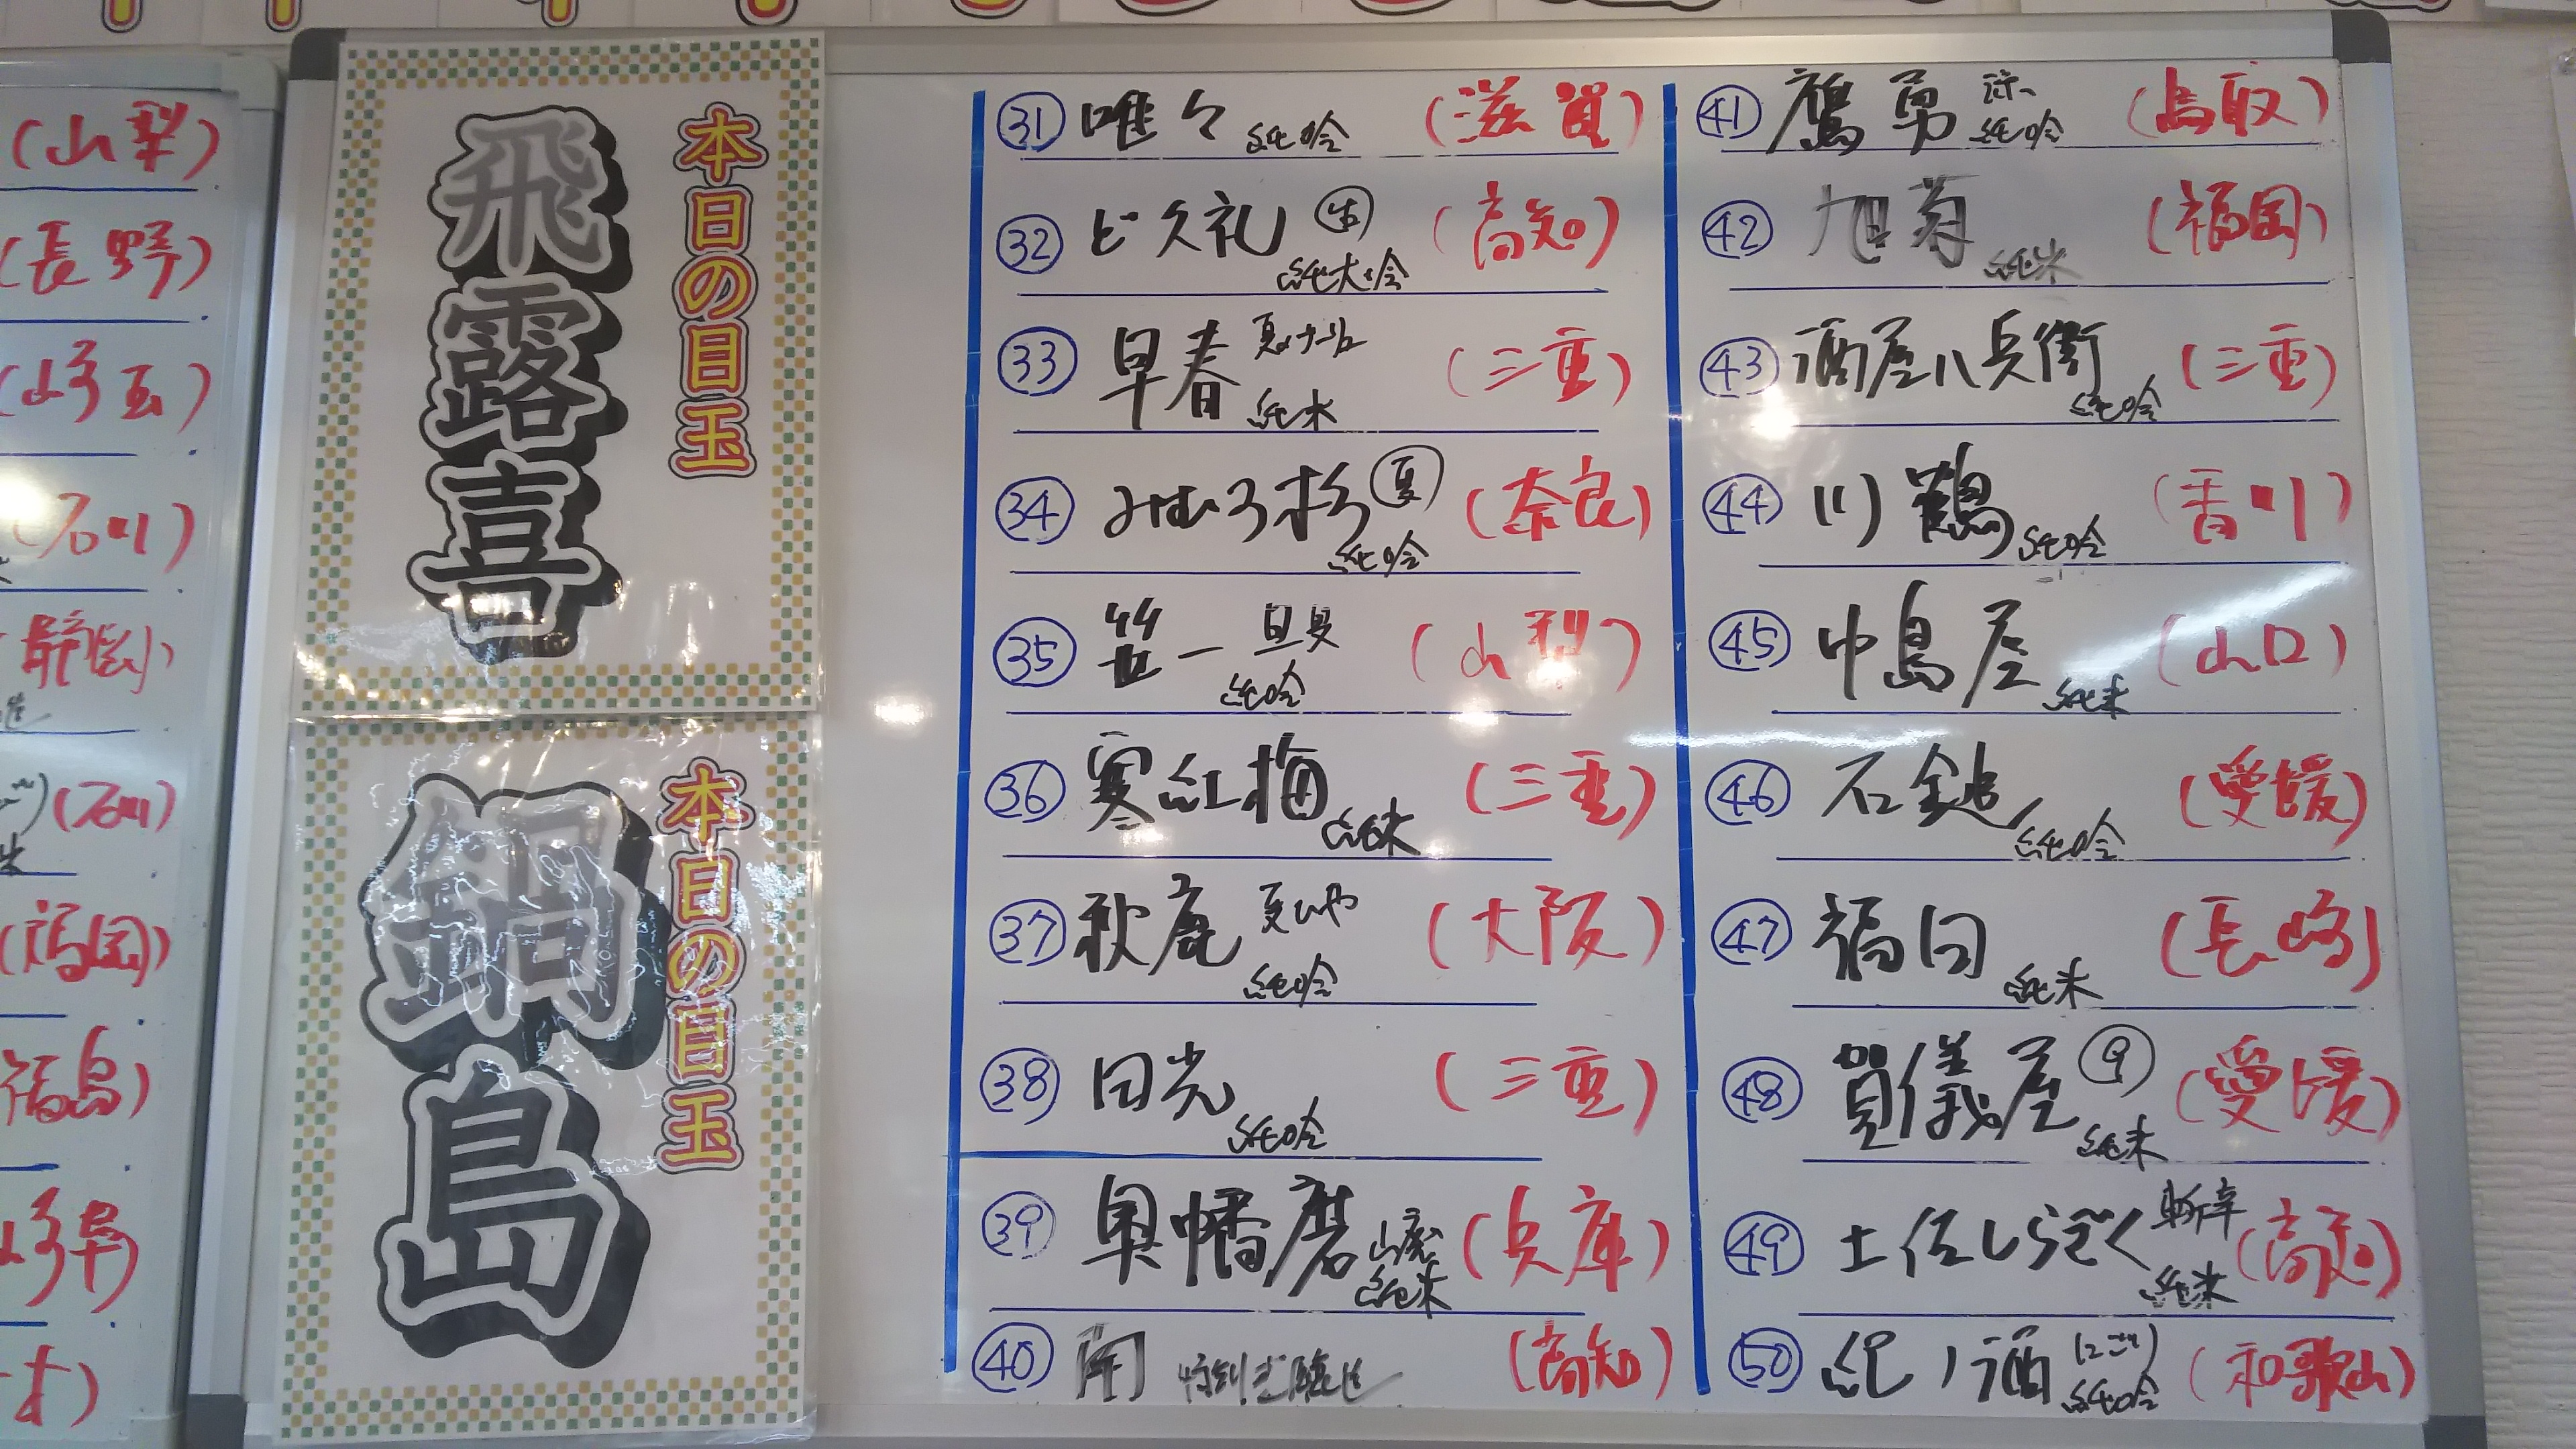 (山梨)
(長野)
(埼玉)
(石川)
(石川)
(福岡)
福島)
本日の目玉
飛露喜
本日の目玉
鍋島
㉛ 唯々 純吟 (滋賀)
㉜ ど久礼 ㊗ 純大吟 (高知)
㉝ 早春 純米 (三重)
㉞ みむろ杉 夏 純吟 (奈良)
㉟ 笹一 旦 純吟 (山梨)
㊱ 寒紅梅 純米 (三重)
㊲ 秋鹿 夏ひや 純吟 (大阪)
㊳ 田光 純吟 (三重)
㊴ 奥幡磨 山廃 純米 (兵庫)
㊵ 南 特別本醸造 (高知)
㊶ 鷹勇 純吟 (鳥取)
㊷ 旭菊 純米 (福岡)
㊸ 酒屋八兵衛 純吟 (三重)
㊹ 川鶴 純吟 (香川)
㊺ 中島屋 純米 (山口)
㊻ 石鎚 純吟 (愛媛)
㊼ 福田 純米 (長崎)
㊽ 賀儀屋 純米 (愛媛)
㊾ 土佐しらぎく 斬辛 純米 (高知)
㊿ 紀ノ酒 にごり 純吟 (和歌山)